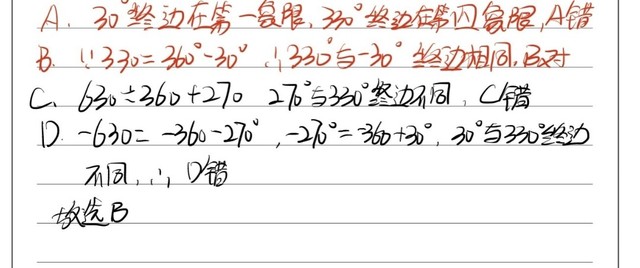 A. 30°终边在第一象限, 330°终边在第四象限, A错
B. ∵330=360°-30° ∴330°与-30°终边相同, B对
C. 630=360+270 270°与330°终边不同, C错
D. -630=-360-270°, -270°=-360+30°, 30°与330°终边
不同, ∴, D错
故选B